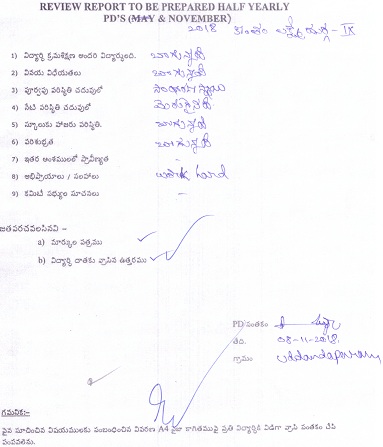 REVIEW REPORT TO BE PREPARED HALF YEARLY
PD'S (MAY & NOVEMBER)
2018 - IX
1) విద్యార్థి క్రమశిక్షణ అందరి విద్యార్థులతో. బాగున్నది
2) వినయ విధేయతలు బాగున్నది
3) పూర్వపు పరిస్థితి చదువులో
4) నేటి పరిస్థితి చదువులో
5) స్కూలుకు హాజరు పరిస్థితి. బాగున్నది
6) పరిశుభ్రత బాగున్నది
7) ఇతర అంశములలో ప్రావీణ్యత -
8) అభిప్రాయాలు / సలహాలు work hard
9) కమిటీ సభ్యుల సూచనలు -
జతపరచవలసినవి –
a) మార్కుల పత్రము
b) విద్యార్థి దాతకు వ్రాసిన ఉత్తరము
PD సంతకం
తేది. 08-11-2018.
గ్రామం
గమనిక:-
పైన సూచించిన విషయములకు సంబంధించిన వివరణ A4 సైజు కాగితముపై ప్రతి విద్యార్థికి విడిగా వ్రాసి సంతకం చేసి
పంపవలెను.